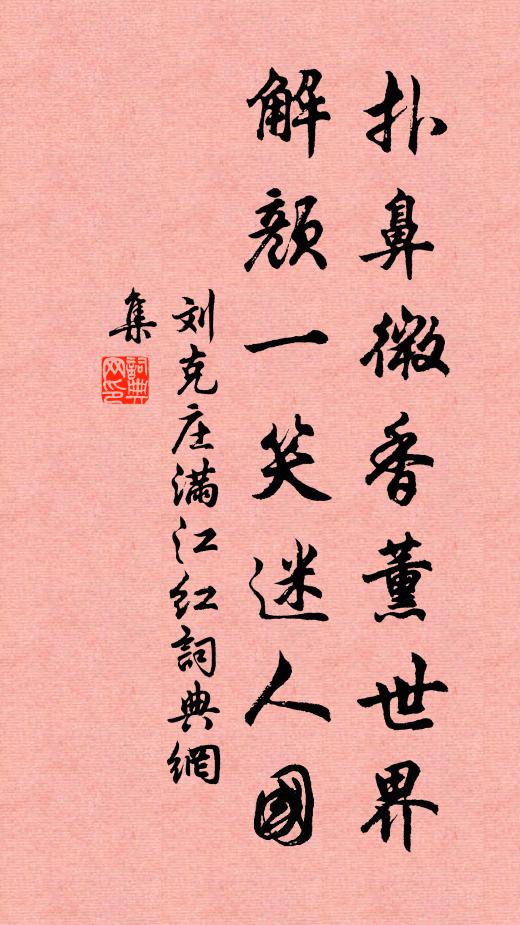 扑鼻微香薰世界
解颜一笑迷人國
刘克庄满江红詞典網
集
詞典
网印